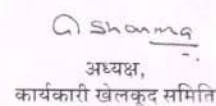 G Sharma
अध्यक्ष,
कार्यकारी खेलकूद समिति